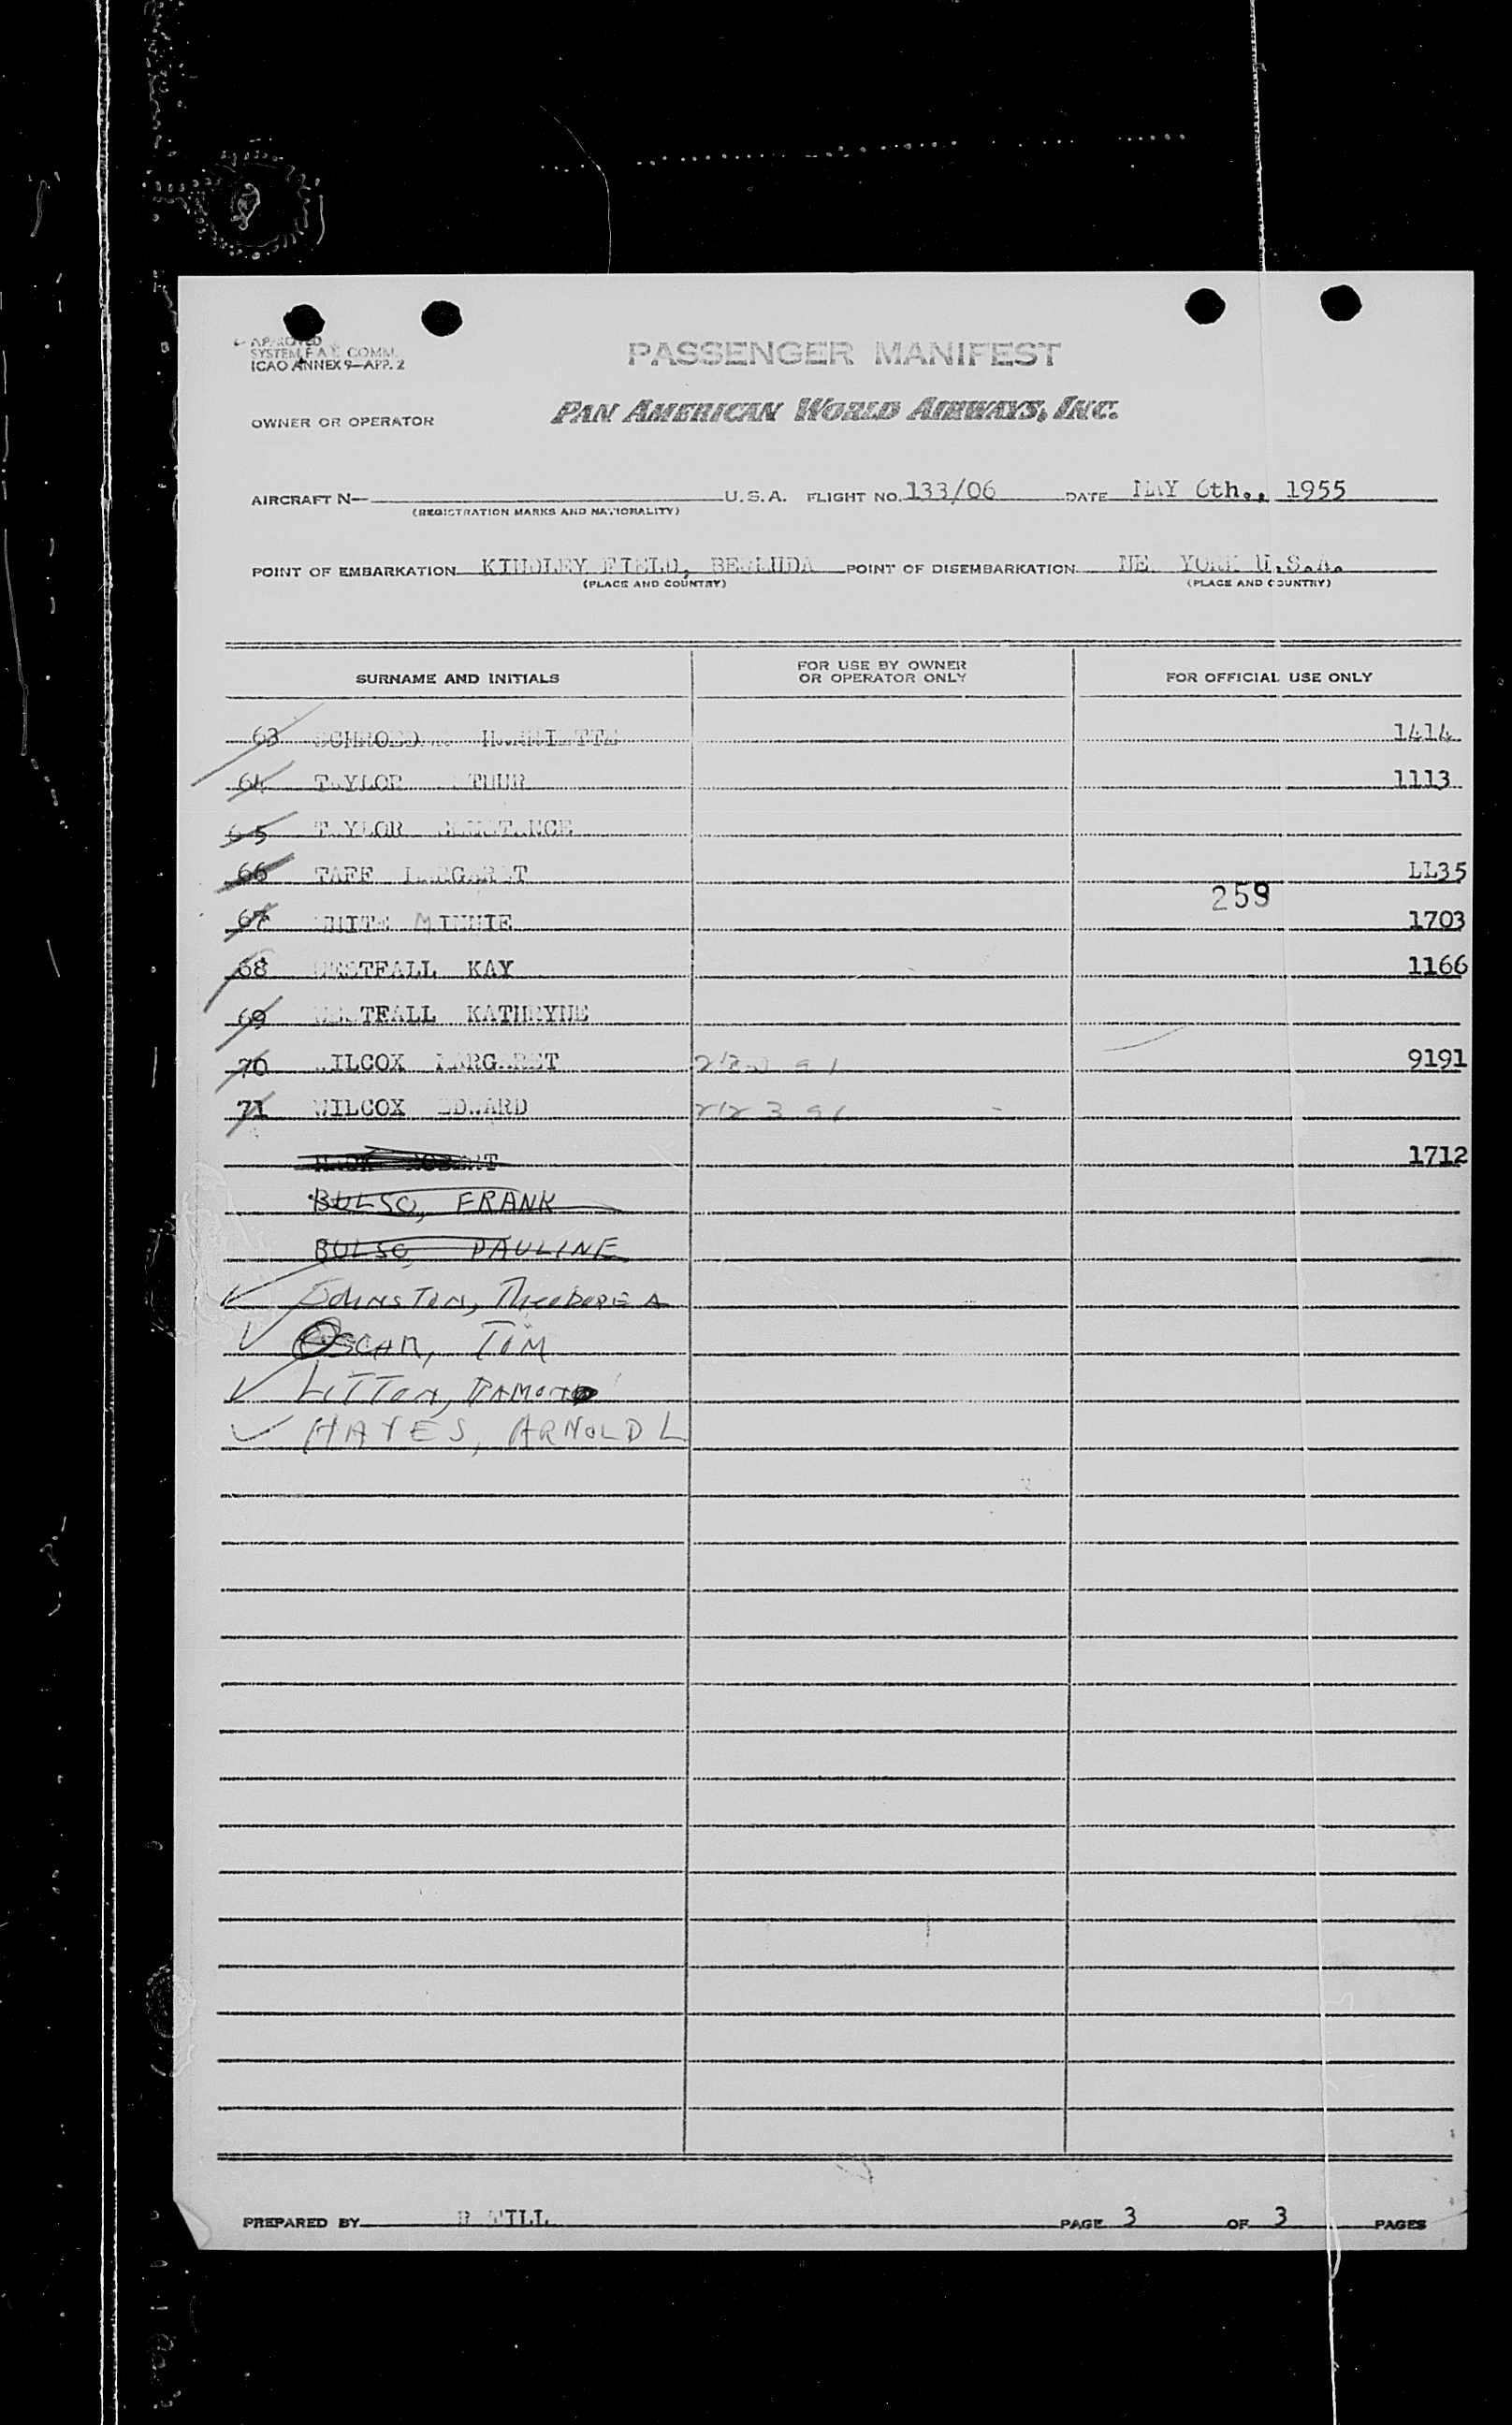 APPROVED
SYSTEM F.A.L. COMM.
ICAO ANNEX 9—APP. 2
PASSENGER MANIFEST
OWNER OR OPERATOR PAN AMERICAN WORLD AIRWAYS, INC.
AIRCRAFT N— U.S.A. FLIGHT NO. 133/06 DATE MAY 6th., 1955
(REGISTRATION MARKS AND NATIONALITY)
POINT OF EMBARKATION KINDLEY FIELD, BERMUDA POINT OF DISEMBARKATION NE YORK U.S.A.
(PLACE AND COUNTRY) (PLACE AND COUNTRY)
SURNAME AND INITIALS FOR USE BY OWNER OR OPERATOR ONLY FOR OFFICIAL USE ONLY
63 HARRIETTE 1414
64 TAYLOR 1113
65 TAYLOR CONSTANCE
66 TAFF MARGARET LL35
259
67 WHITE MINNIE 1703
68 WESTFALL KAY 1166
69 WESTFALL KATHRYNE
70 WILCOX MARGARET 9191
71 WILCOX EDWARD
1712
BULSO, FRANK
BULSO PAULINE
JOHNSTON, THEODORE A
OSCAR, TIM
LITTON, RAMOND
HAYES, ARNOLD L
PREPARED BY PAGE 3 OF 3 PAGES